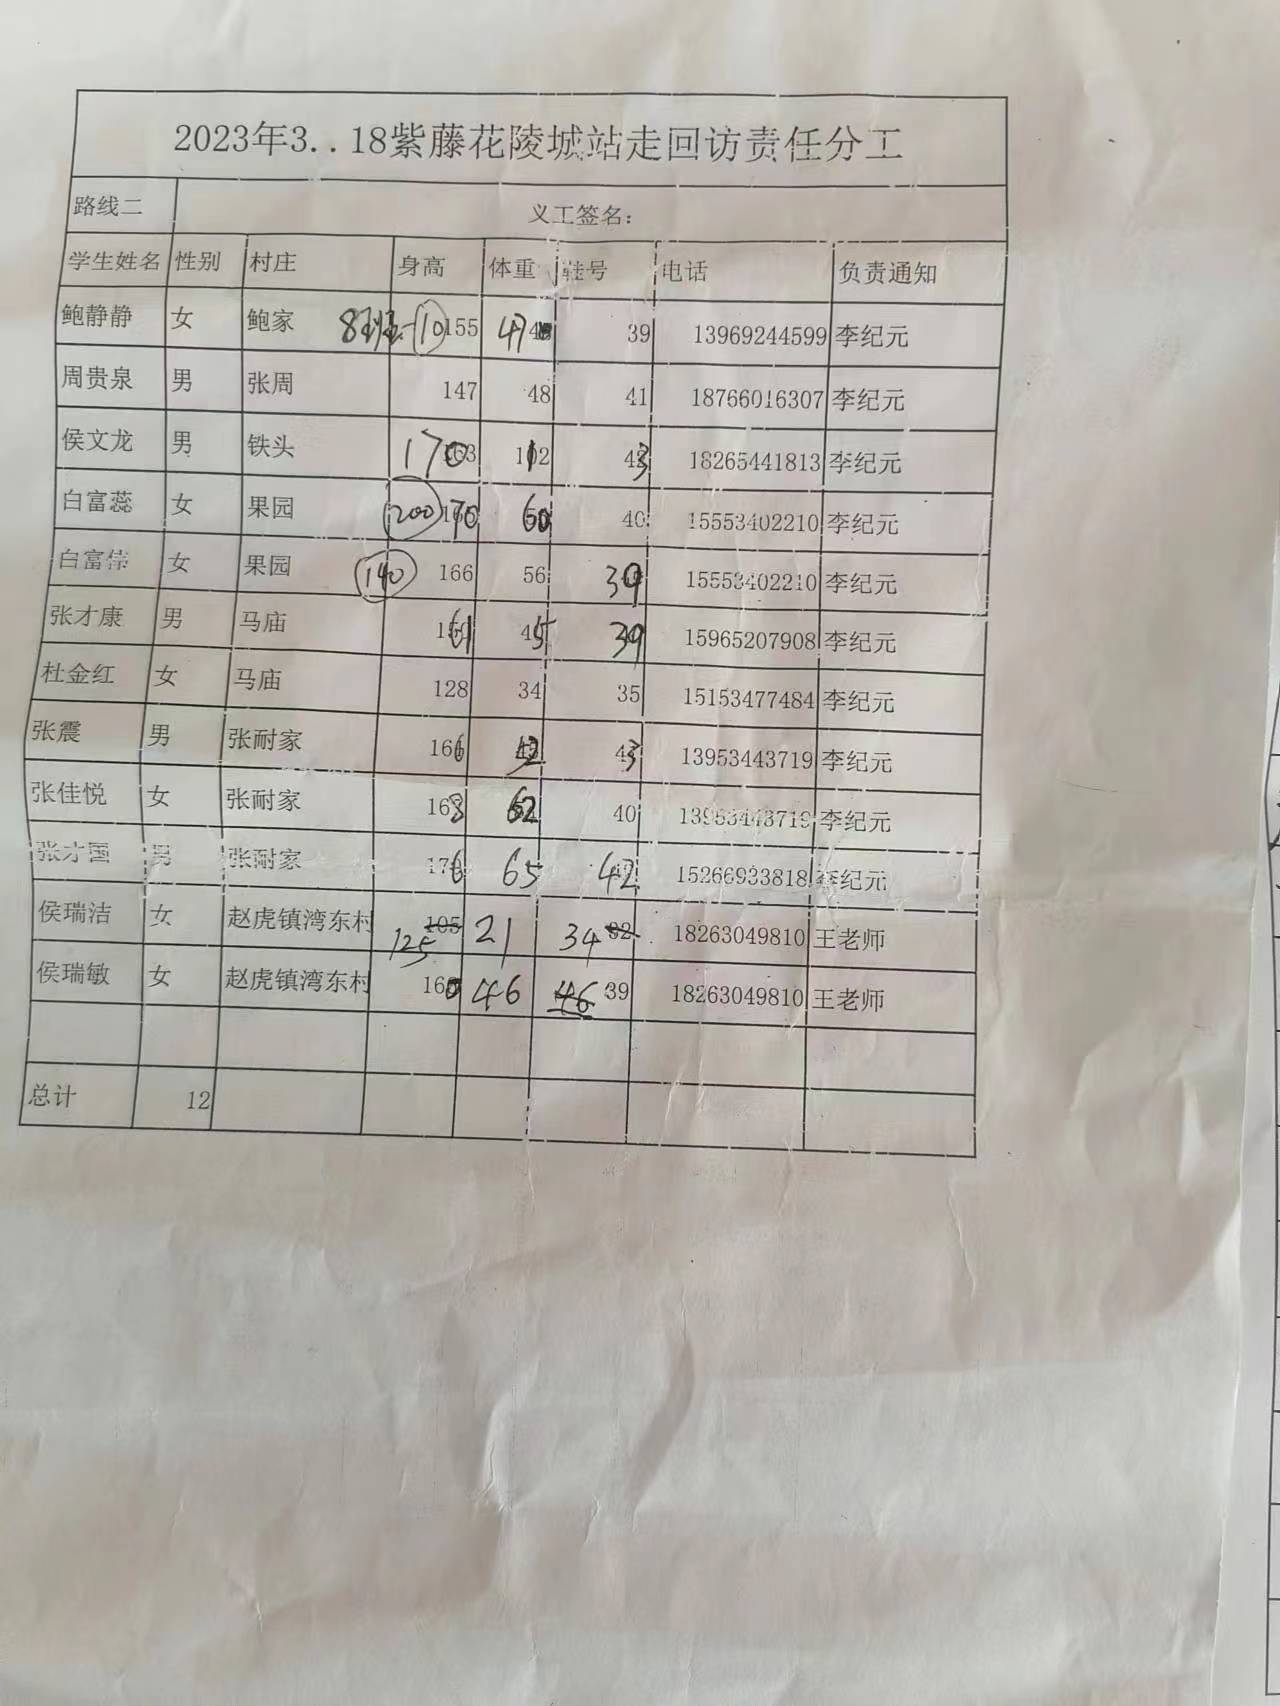 2023年3..18紫藤花陵城站走回访责任分工
路线二 义工签名：
学生姓名 性别 村庄 身高 体重 鞋号 电话 负责通知
鲍静静 女 鲍家 10 155 47 39 13969244599 李纪元
周贵泉 男 张周 147 48 41 18766016307 李纪元
侯文龙 男 铁头 170 112 43 18265441813 李纪元
白富蕊 女 果园 200 170 60 40 15553402210 李纪元
白富伟 女 果园 140 166 56 39 15553402210 李纪元
张才康 男 马庙 161 45 39 15965207908 李纪元
杜金红 女 马庙 128 34 35 15153477484 李纪元
张震 男 张耐家 166 43 13953443719 李纪元
张佳悦 女 张耐家 168 62 40 13953443719 李纪元
张才国 男 张耐家 176 65 42 15266933818 李纪元
侯瑞洁 女 赵虎镇湾东村 125 105 21 34 32 18263049810 王老师
侯瑞敏 女 赵虎镇湾东村 160 46 46 39 18263049810 王老师
总计 12